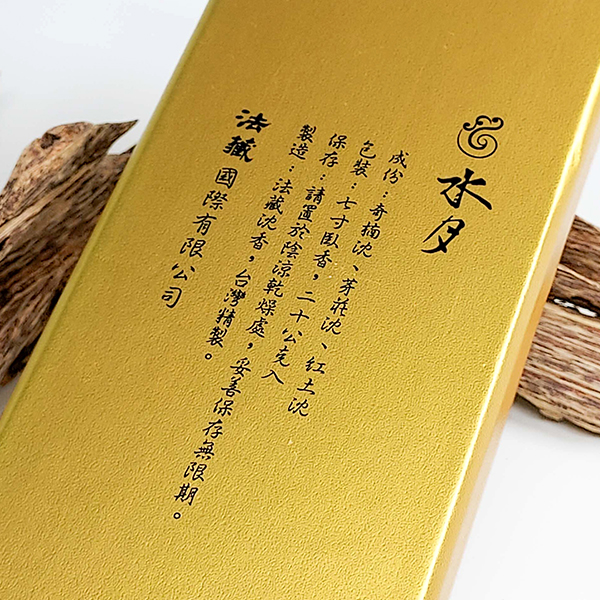 水月
成份：奇楠沈、芽莊沈、紅土沈
包裝：七寸臥香，二十公克入
保存：請置於陰涼乾燥處，妥善保存無限期。
製造：法藏沈香，台灣精製。
法藏國際有限公司